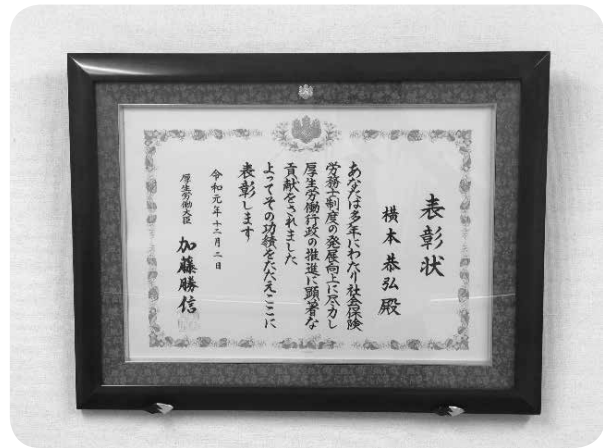 表彰状
横本恭弘殿
あなたは多年にわたり社会保険
労務士制度の発展向上に尽力し
厚生労働行政の推進に顕著な
貢献をされました
よってその功績をたたえここに
表彰します
令和元年十二月二日
厚生労働大臣 加藤勝信